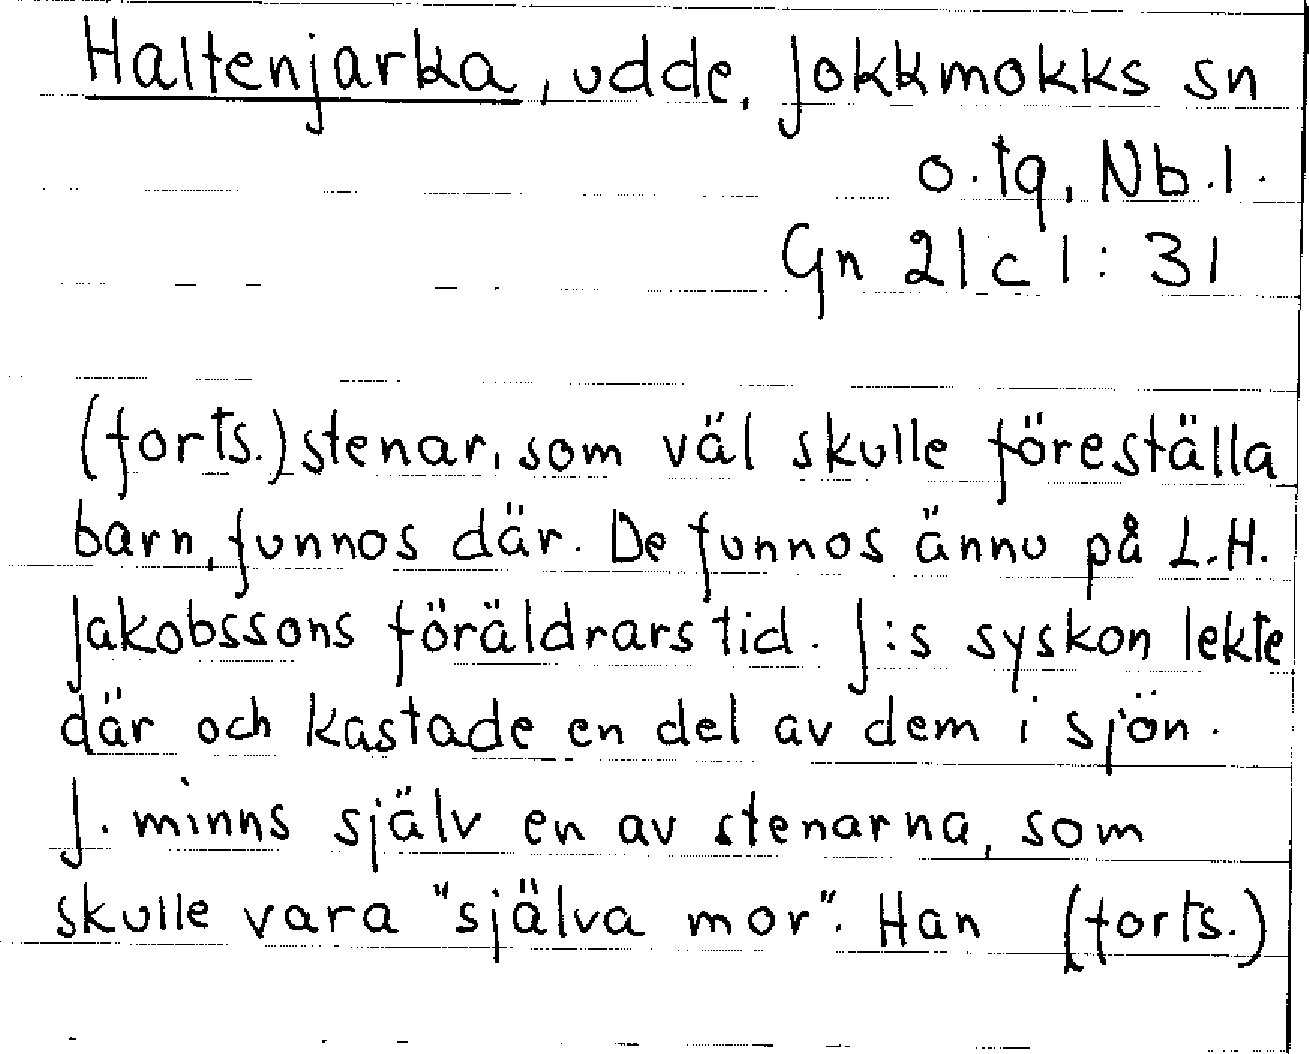 Haltenjarka, udde, Jokkmokks sn
o. tg, Nb.l.
Gn 21c1:31
(forts.) stenar, som väl skulle föreställa
barn, funnos där. De funnos ännu på L.H.
Jakobssons föräldrars tid. J:s syskon lekte
där och kastade en del av dem i sjön.
J. minns själv en av stenarna, som
skulle vara "själva mor". Han (forts.)